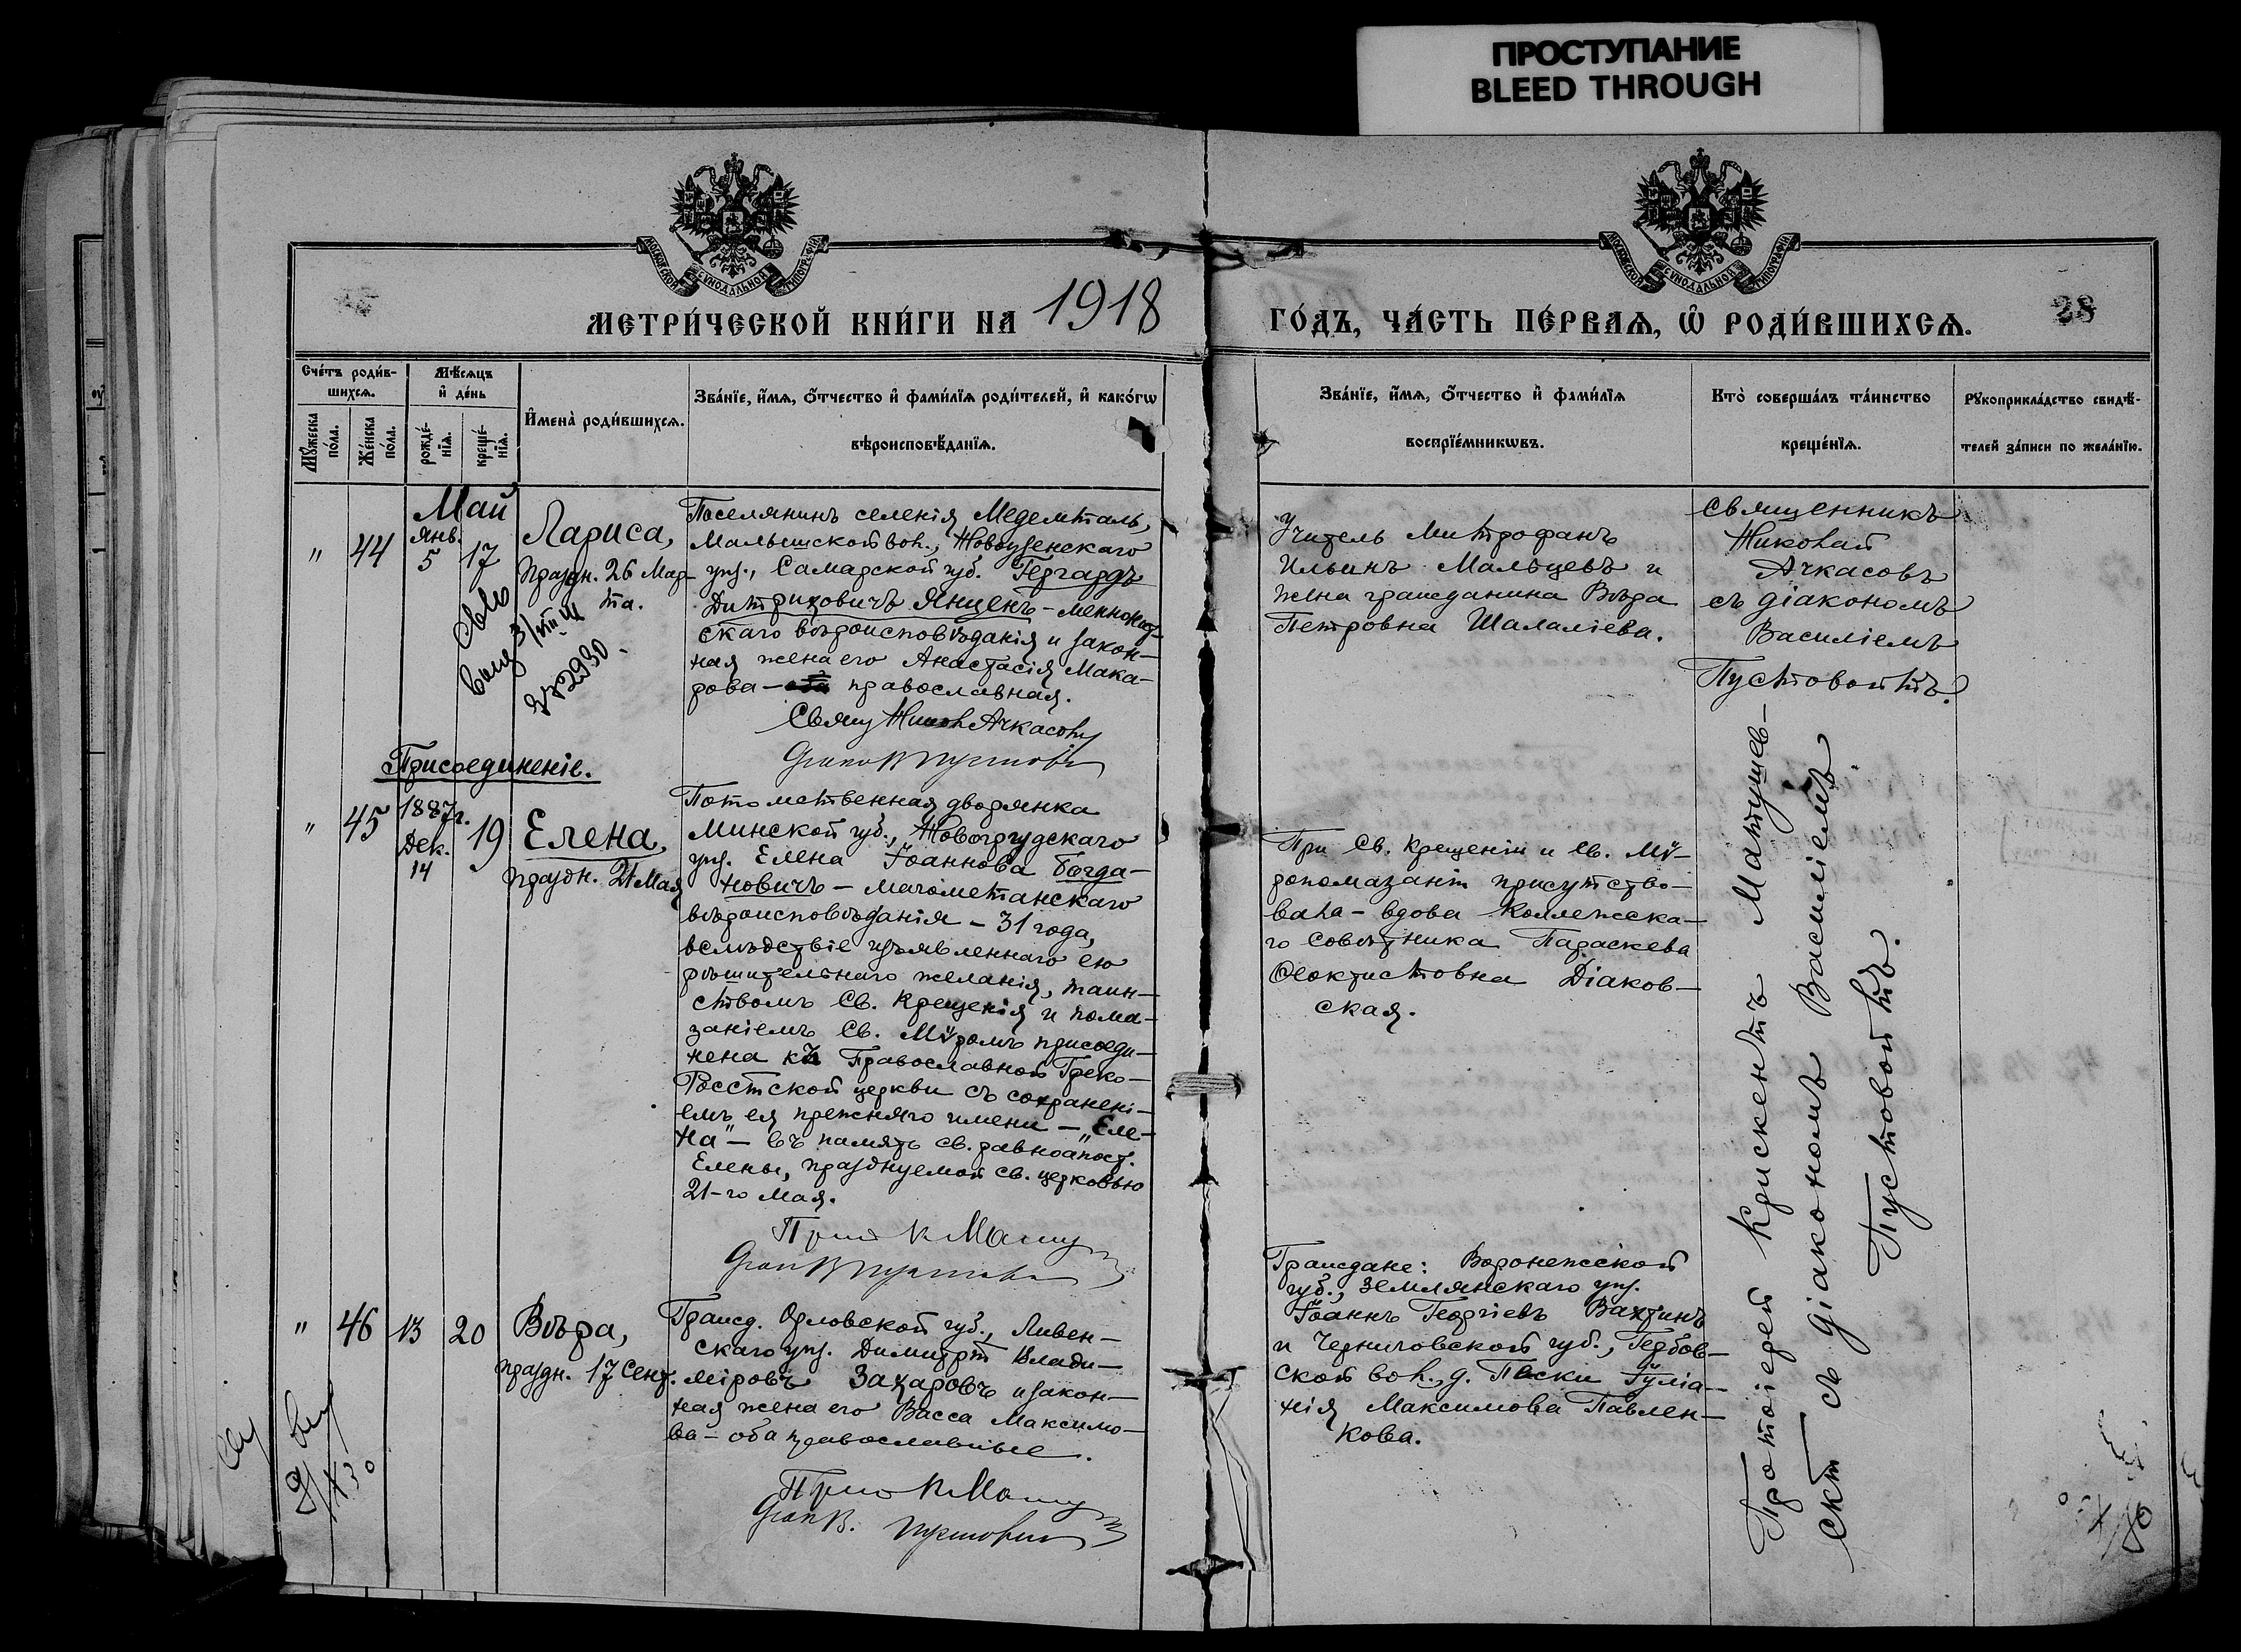 ПРОСТУПАНИЕ
BLEED THROUGH
МОСКОВСКОЙ СѴНОДАЛЬНОЙ ТИПОГРАФІИ
МОСКОВСКОЙ СѴНОДАЛЬНОЙ ТИПОГРАФІИ
МЕТРИ́ЧЕСКОЙ КНИ́ГИ НА 1918
ГО́ДЪ, ЧА́СТЬ ПЕ́РВАѦ, Ѡ҆ РОДИ́ВШИХСѦ.
28
Сче́тъ роди́в-
шихсѧ.
Мꙋ́жеска по́ла.
Же́нска по́ла.
Мѣ́сѧцъ
и҆ де́нь
рожде́-
нїѧ.
креще́-
нїѧ.
И҆мена̀ роди́вшихсѧ.
Зва́нїе, и҆́мѧ, ѻ҆́тчество и҆ фами́лїѧ роди́телей, и҆ како́гѡ
вѣроисповѣ́данїѧ.
Зва́нїе, и҆́мѧ, ѻ҆́тчество и҆ фами́лїѧ
воспрїе́мникѡвъ.
Кто̀ соверша́лъ та́инство
креще́нїѧ.
Рꙋкоприкла́дство свидѣ́-
телей за́писи по жела́нїю.
Май
" 44 Янв. 5 17
Лариса,
праздн. 26 Мар-
та.
№ 2930.
Поселянинъ селенія Медемталь,
Малышской вол., Новоузенскаго
уѣз., Самарской губ. Гергардъ
Дитриховичъ Янценъ – меннонит-
скаго вѣроисповѣданія и закон-
ная жена его Анастасія Мака-
рова – православная.
Свящ Никол Ачкасовъ
Діакон В Пустовойтъ
Учитель Митрофанъ
Ильинъ Мальцевъ и
жена гражданина Вѣра
Петровна Шалаліева.
Священникъ
Николай
Ачкасовъ
съ діакономъ
Василіемъ
Пустовойтъ.
Присоединеніе.
" 45 1887г. Дек. 14 19
Елена,
праздн. 21 Мая
Потомственная дворянка
Минской губ., Новогрудскаго
уѣз. Елена Іоаннова Богда-
новичъ – магометанскаго
вѣроисповѣданія – 31 года,
вслѣдствіе изъявленнаго ею
рѣшительнаго желанія, таин-
ствомъ Св. Крещенія и пома-
заніемъ Св. Мѵромъ присоеди-
нена къ Православной Греко-
Россійской церкви съ сохранені-
емъ ея прежняго имени – „Еле-
на" – въ память св. равноапост.
Елены, празднуемой св. церковью
21-го Мая.
При Св. Крещеніи и Св. Мѵ-
ропомазаніи присутство-
вала – вдова Коллежска-
го Совѣтника Параскева
Ѳеоктистовна Діаков-
ская.
Протоіерей Крискентъ Матушев-
скій съ діакономъ Василіемъ
Пустовойтъ.
" 46 13 20
Вѣра,
праздн. 17 Сент.
Гражд. Орловской губ., Ливен-
скаго уѣз. Димитрій Влади-
міровъ Захаровъ и закон-
ная жена его Васса Максимо-
ва – оба православные.
Граждане: Воронежской
губ., Землянскаго уѣз.
Іоаннъ Георгіевъ Вахтинъ
и Черниговской губ., Гербов-
ской вол., д. Паски Іуліа-
нія Максимова Павлен-
кова.